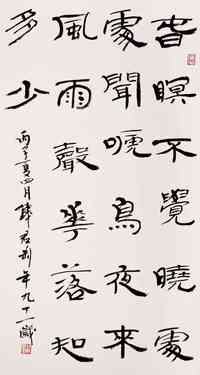 春瞑不覺曉處
處聞嗁鳥夜來
風雨聲華落知
多少
丙子夏四月錢君匋年九十一歲